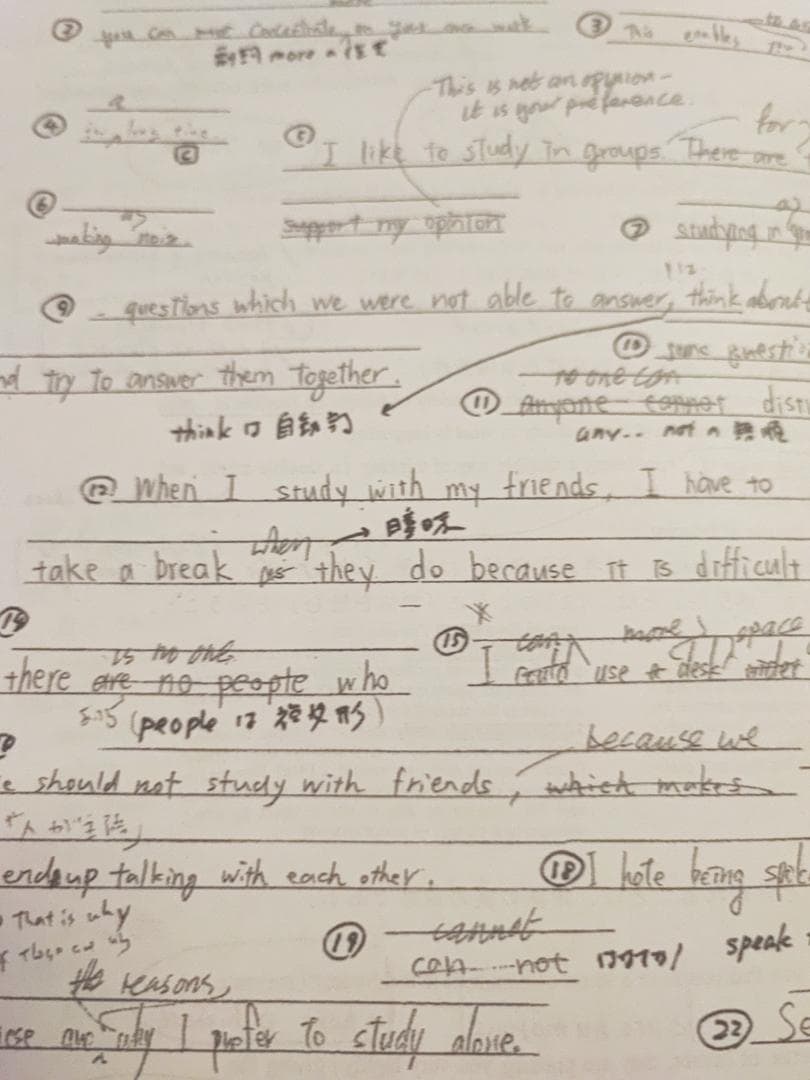 ② you can more concentrate on your own work
more の位置
③ This enables
④ in long time
a
⑤ I like to study in groups. There are
This is not an opinion -
it is your preference.
for
⑥ making noiz.
support my opinion
⑦ studying in
⑨ questions which we were not able to answer, think about
⑩ some questi
nd try to answer them together.
no one can
⑪ anyone cannot distu
think は 自動詞
any.. not の 無理
⑫ When I study with my friends, I have to
when → 曖昧
take a break as they do because it is difficult
⑭
is no one
there are no people who
(people は 複数形)
⑮ I could use a desk
can more space
because we
e should not study with friends, which makes
「人が主語」
ends up talking with each other.
⑱ I hate being spok
That is why
⑲ cannot
can not
speak
the reasons,
ese are why I prefer to study alone.
㉒ Se